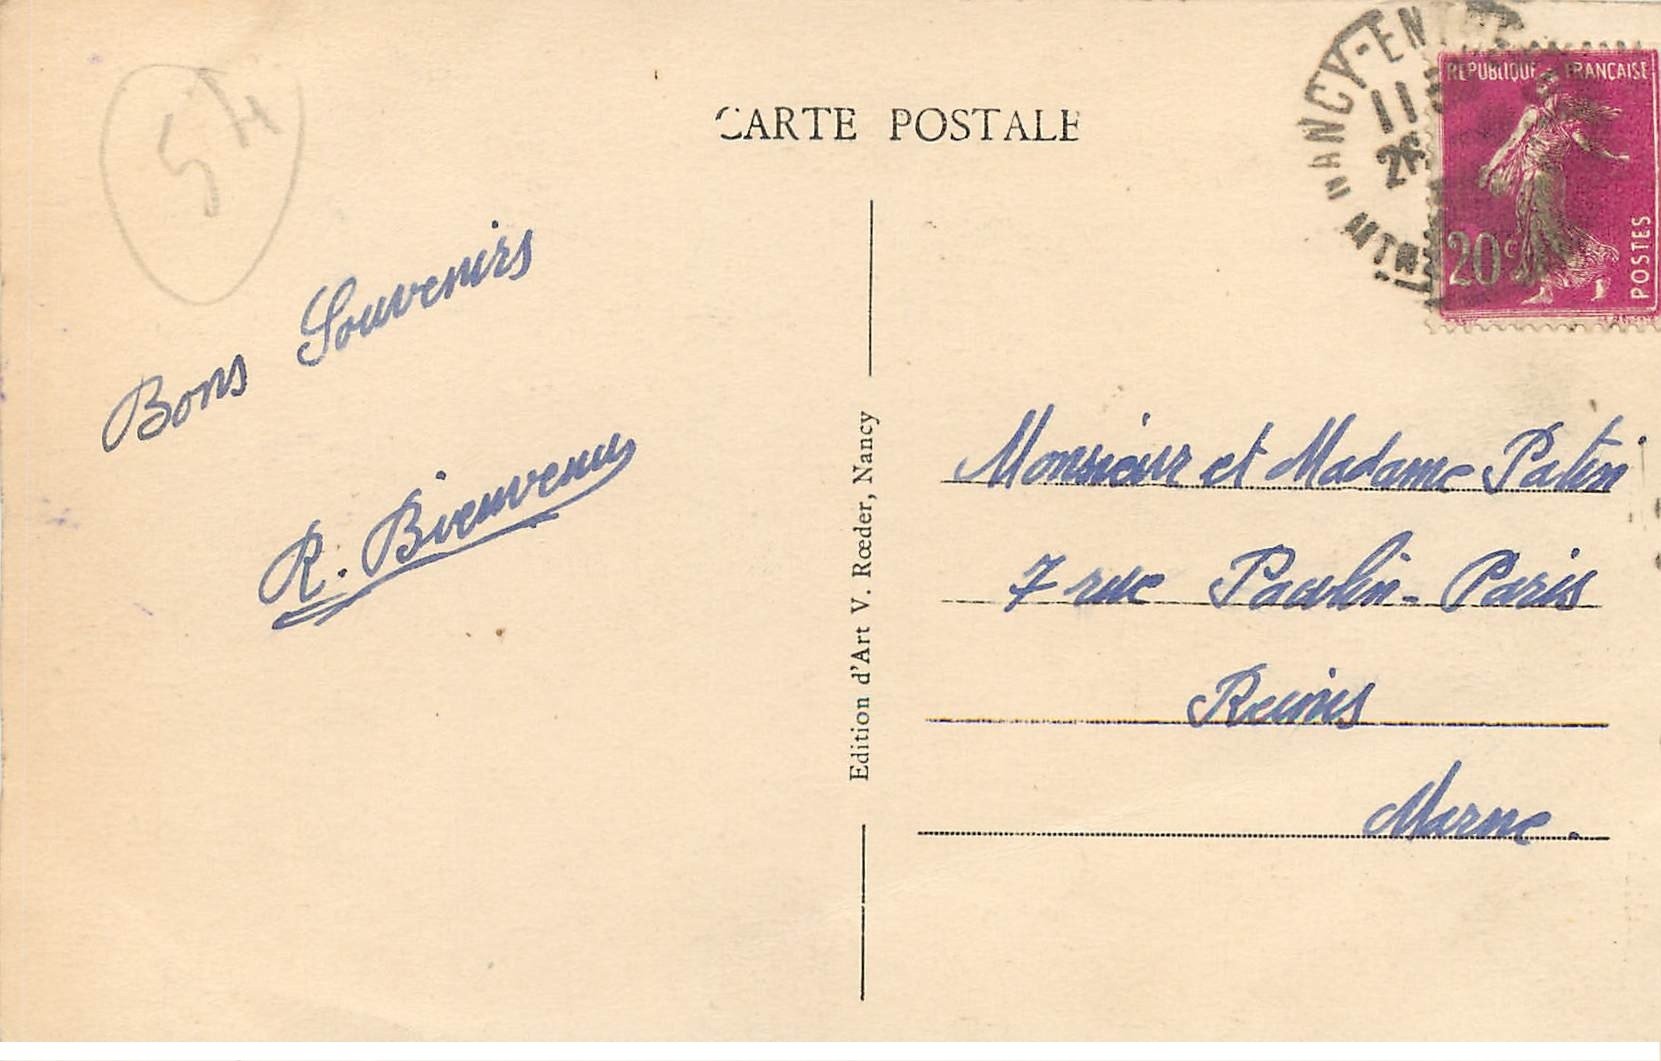 54
CARTE POSTALE
NANCY-ENTR
11
REPUBLIQUE FRANCAISE
20c
POSTES
Bons Souvenirs
R. Bienvenu
Edition d'Art V. Rœder, Nancy
Monsieur et Madame Patin
7 rue Paulin-Paris
Reims
Marne.